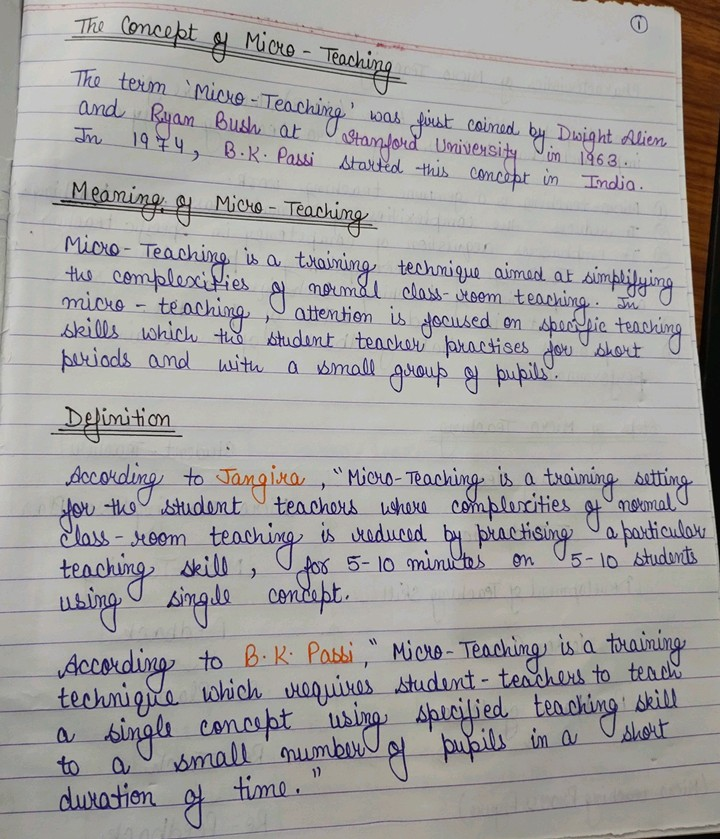 1
The Concept of Micro-Teaching
The term 'Micro-Teaching' was first coined by Dwight Alien
and Ryan Bush at Stanford University in 1963.
In 1974, B.K. Passi started this concept in India.
Meaning of Micro-Teaching
Micro-Teaching is a training technique aimed at simplifying
the complexities of normal class-room teaching. In
micro-teaching, attention is focused on specific teaching
skills which the student teacher practises for short
periods and with a small group of pupils.
Definition
According to Jangira, "Micro-Teaching is a training setting
for the student teachers where complexities of normal
class-room teaching is reduced by practising a particular
teaching skill, for 5-10 minutes on 5-10 students
using single concept.
According to B.K. Passi, "Micro-Teaching is a training
technique which requires student-teachers to teach
a single concept using specified teaching skill
to a small number of pupils in a short
duration of time."